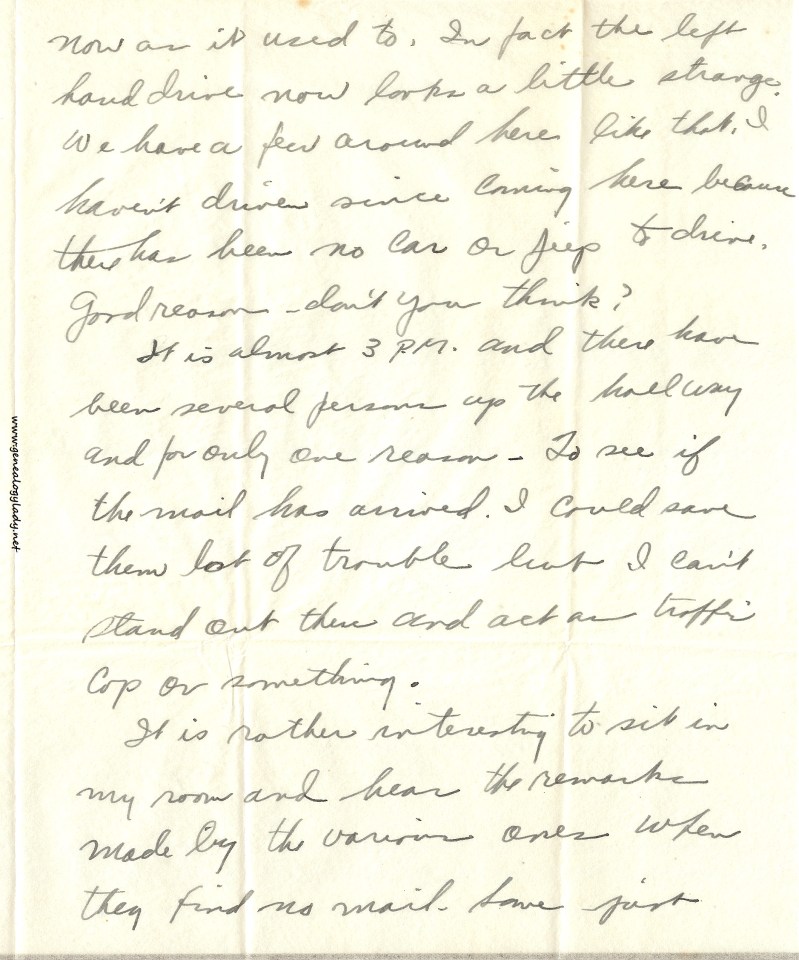 now as it used to. In fact the left
hand drive now looks a little strange.
We have a few around here like that. I
haven't driven since coming here because
there has been no car or jeep to drive.
Good reason - don't you think?
It is almost 3 P.M. and there have
been several persons up the hallway
and for only one reason - To see if
the mail has arrived. I could save
them lost of trouble but I can't
stand out there and act as traffic
cop or something.
It is rather interesting to sit in
my room and hear the remarks
made by the various ones when
they find no mail. Some just
www.genealogylady.net